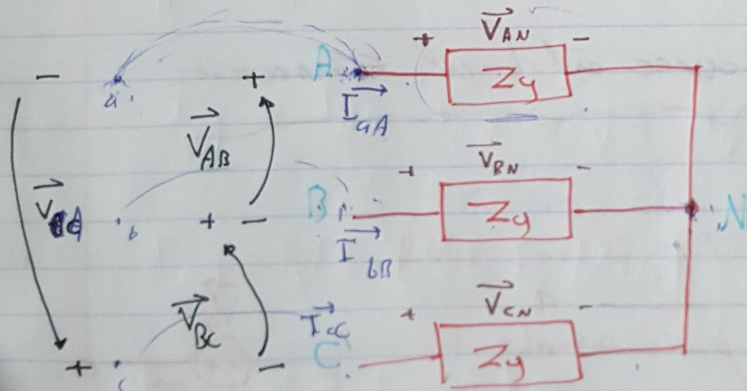 + V_AN -
- a + A Z_y
I_aA
V_AB
+ V_BN -
b + - B Z_y N
I_bB
V_BC I_cC + V_CN -
+ c - C Z_y